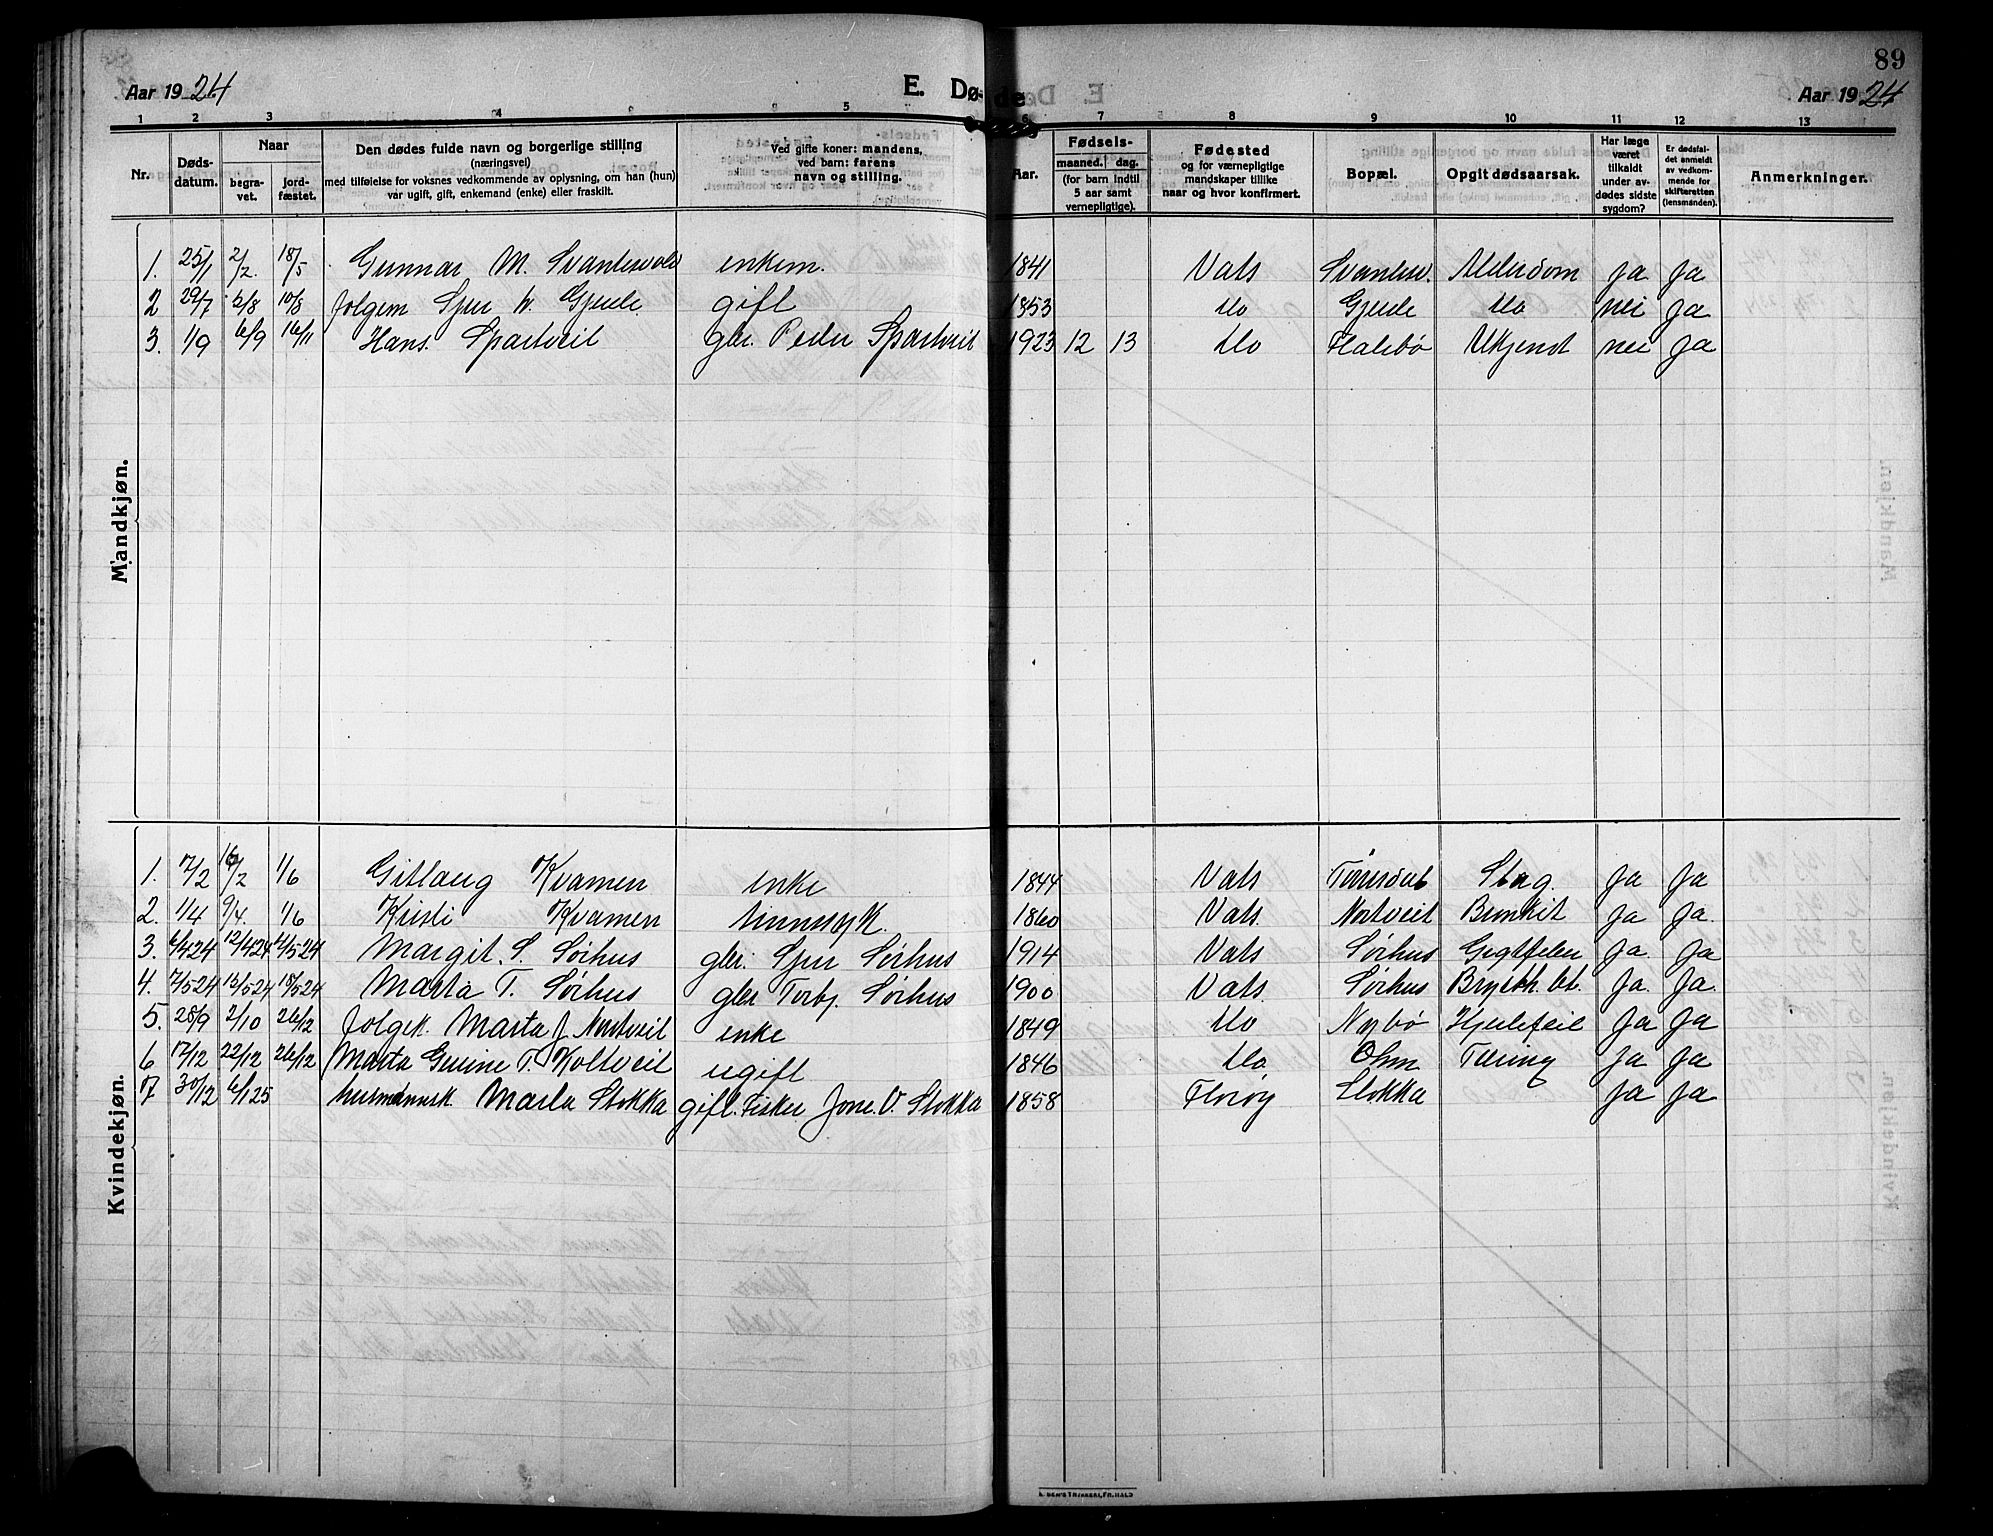 89
Aar 1924 E. Døde Aar 1924
1 2 3 4 5 6 7 8 9 10 11 12 13
Nr. Døds-datum. Naar begra-vet. jord-fæstet. Den dødes fulde navn og borgerlige stilling (næringsvei) med tilføielse for voksnes vedkommende av oplysning, om han (hun) var ugift, gift, enkemand (enke) eller fraskilt. Ved gifte koner: mandens, ved barn: farens navn og stilling. Aar. Fødsels- maaned. dag. (for barn indtil 5 aar samt vernepligtige). Fødested og for værnepligtige mandskaper tillike naar og hvor konfirmert. Bopæl. Opgit dødsaarsak. Har læge været tilkaldt under av-dødes sidste sygdom? Er dødsfal-det anmeldt av vedkom-mende for skifteretten (lensmanden). Anmerkninger.
Mandkjøn.
1. 25/1 2/2. 18/5 Gunnar M. Svantesvold enkem. 1841 Vats Svantesv. Alderdom Ja Ja
2 29/7 2/8 10/8 Sjur W. Gjerde gift 1853 do Gjerde do nei Ja
3. 1/9 6/9 16/11 Hans. Spartveit gbr. Peder Spartveit 1923 12 13 do Flatebø Ukjendt nei Ja
Kvindekjøn.
1. 7/2 16/2 1/6 Gitlaug Kvamen enke 1844 Vats Slag. Ja Ja
2. 1/4 9/4. 1/6 Kristi Kvamen sinnssyk. 1860 Vats. Nortveit Bronkit Ja Ja.
3. 6/4 24 12/4 24 Margit. S. Sørhus gbr. Sjur Sørhus 1914 Vats Sørhus Gigtfeber Ja. Ja
4. 7/5 24 13/5 24 18/5 24 Marta T. Sørhus gbr Torbj. Sørhus 1900 Vats. Sørhus Brysth. bet. Ja. Ja.
5. 28/9 2/10 26/12 Marta J. Nortveit enke 1849 do Nybø Hjertefeil Ja Ja
6 17/12 22/12 26/12 Marta Gurine T. Koltveit ugift 1846 do Ohm Tæring Ja Ja
7 30/12 6/1 25 husmannsk. Marta Stokka gift. Fisker Jone. V. Stokka 1858 Florøy Stokka Ja Ja